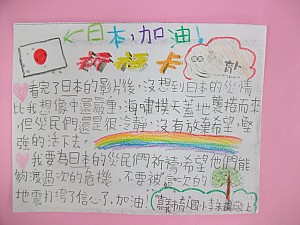 日本,加油!
祈福卡
看完了日本的影片後,沒想到日本的災情
比我想像中嚴重,海嘯接天蓋地襲捲而來
但災民們還是很冷靜,沒有放棄希望,堅
強的活下去。
我要為日本的災民們祈禱希望他們能
夠渡過次的危機,不要被這次的
地震打垮了信心了,加油!